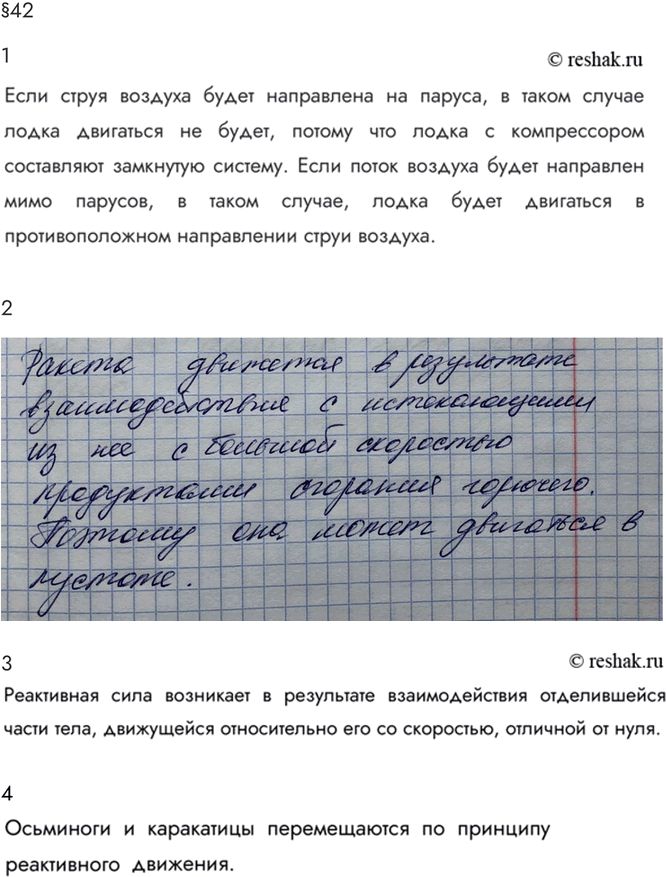 §42
1
© reshak.ru
Если струя воздуха будет направлена на паруса, в таком случае
лодка двигаться не будет, потому что лодка с компрессором
составляют замкнутую систему. Если поток воздуха будет направлен
мимо парусов, в таком случае, лодка будет двигаться в
противоположном направлении струи воздуха.
2
Ракета движется в результате
взаимодействия с истекающими
из нее с большой скоростью
продуктами сгорания горючего.
Поэтому она может двигаться в
пустоте.
3
© reshak.ru
Реактивная сила возникает в результате взаимодействия отделившейся
части тела, движущейся относительно его со скоростью, отличной от нуля.
4
Осьминоги и каракатицы перемещаются по принципу
реактивного движения.